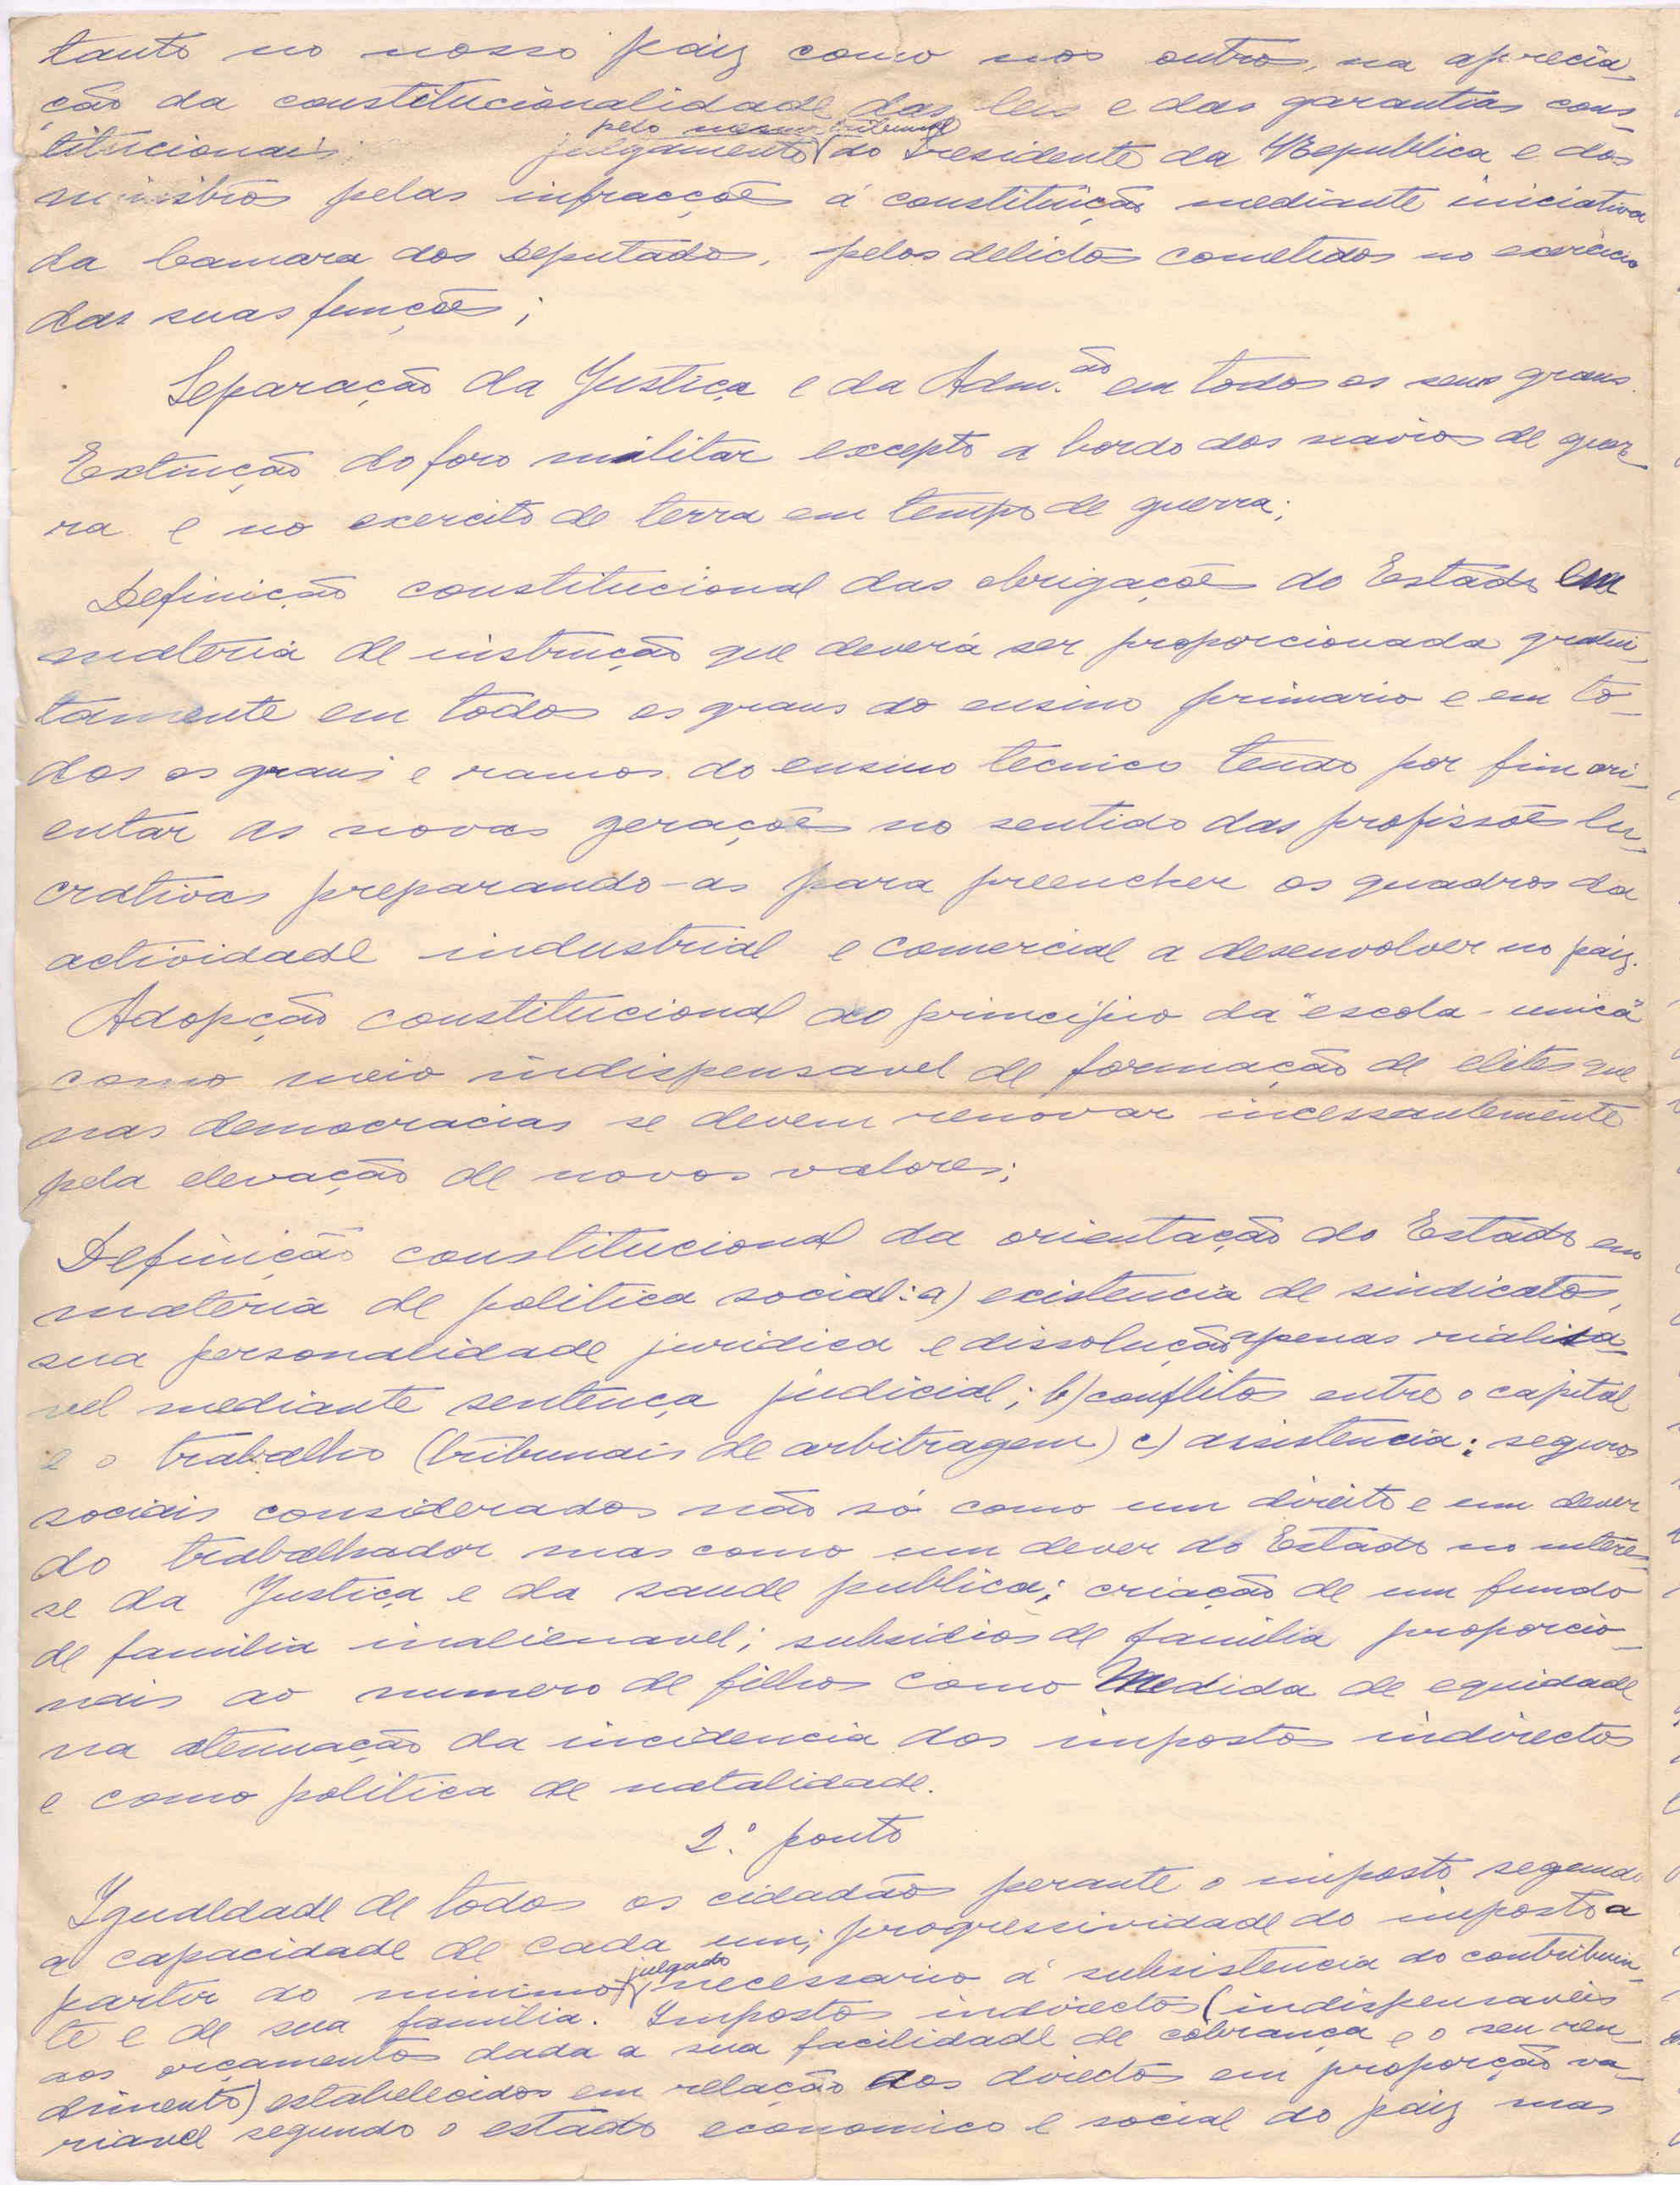 tanto no nosso paiz como nos outros, na aprecia-
ção da constitucionalidade das leis e das garantias cons-
titucionais; julgamento pelo mesmo tribunal do Presidente da Republica e dos
ministros pelas infracções á constituição mediante iniciativa
da Camara dos Deputados, pelos delictos cometidos no exercicio
das suas funções;
Separação da Justiça e da Adm.ão em todos os seus graus.
Extinção do foro militar excepto a bordo dos navios de guer-
ra e no exercito de terra em tempo de guerra;
Definição constitucional das obrigações do Estado em
materia de instrução que deverá ser proporcionada gratui-
tamente em todos os graus do ensino primario e em to-
dos os graus e ramos do ensino tecnico tendo por fim ori-
entar as novas gerações no sentido das profissões lu-
crativas preparando-as para preencher os quadros da
actividade industrial e comercial a desenvolver no paiz.
Adopção constitucional do principio da "escola-unica"
como meio indispensavel de formação de elites que
nas democracias se devem renovar incessantemente
pela elevação de novos valores;
Definição constitucional da orientação do Estado em
materia de politica social: a) existencia de sindicatos,
sua personalidade juridica e dissolução apenas rialisa-
vel mediante sentença judicial; b) conflitos entre o capital
e o trabalho (tribunais de arbitragem) c) assistencia; seguros
sociais considerados não só como um direito e um dever
do trabalhador mas como um dever do Estado no interes-
se da Justiça e da saude publica; criação de um fundo
de familia inalienavel; subsidios de familia proporcio-
nais ao numero de filhos como Medida de equidade
na atenuação da incidencia dos impostos indirectos
e como politica de natalidade.
2.º ponto
Igualdade de todos os cidadãos perante o imposto segundo
a capacidade de cada um; progressividade do imposto a
partir do minimo julgado necessario á subsistencia do contribuin-
te e de sua familia. Impostos indirectos (indispensaveis
aos orçamentos dada a sua facilidade de cobrança e o seu ren-
dimento) estabelecidos em relação aos directos em proporção va-
riavel segundo o estado economico e social do paiz mas